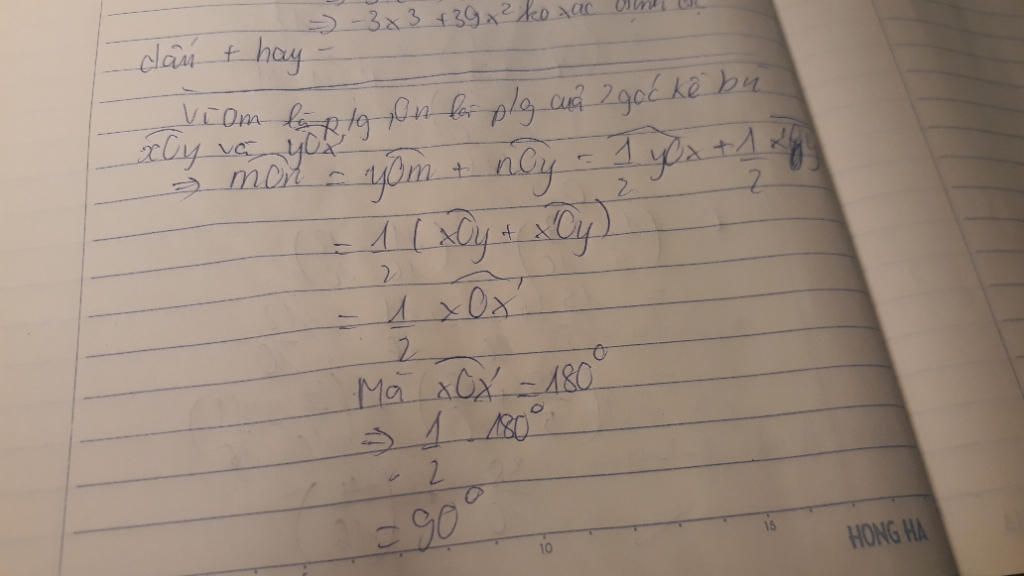 ⇒ -3x3 + 39x² ko xác định đc
dấu + hay -
Vì Om là p/g, On là p/g của 2 góc kề bù
xOy và yOx'
⇒ mOn = yOm + nOy = 1/2 yOx + 1/2
= 1/2 (xOy + x'Oy)
= 1/2 xOx'
Mà xOx' = 180°
⇒ 1/2 . 180°
= 90°
10 15 HONG HA